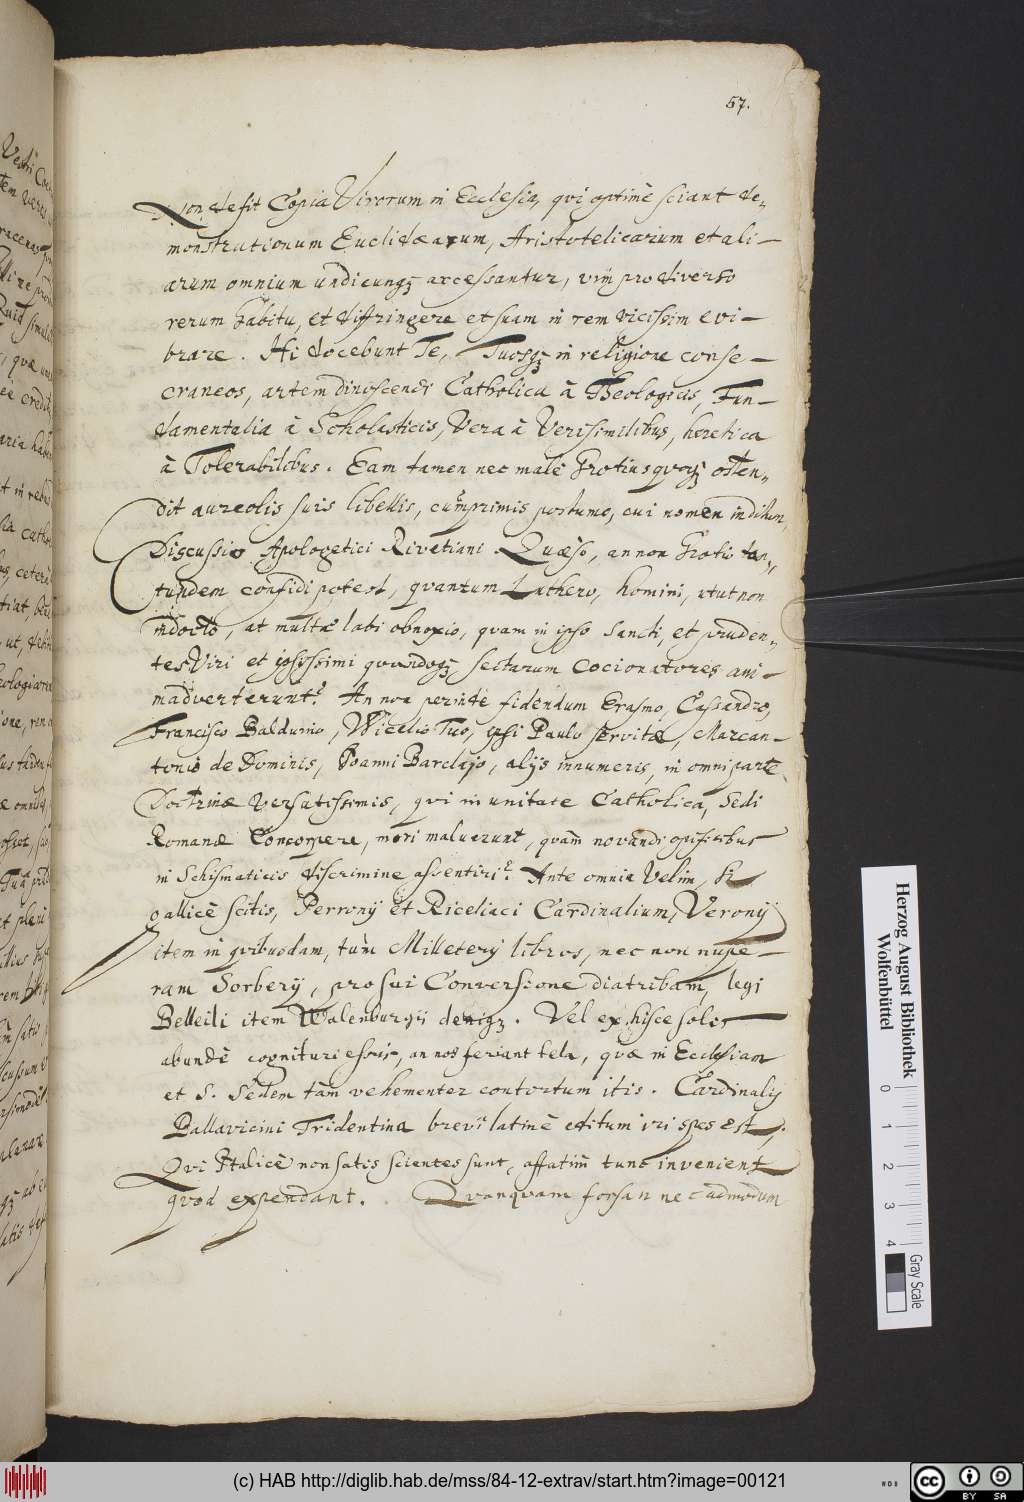 57.
Non desit Copia Virorum in Ecclesia, qvi optimè sciant de-
monstrationum Euclidæarum, Aristotelicarium et ali-
arum omnium undicunqꝫ arcessantur, vim pro diverso
rerum habitu, et diffringere et suam in rem vicissim evi-
brare. Hi docebunt Te, Tuosqꝫ in religione conse-
craneos, artem dinoscendi Catholica à Theologicis, Fun-
damentalia à Scholasticis, Vera à Verisimilibus, hæretica
à Tolerabilibus. Eam tamen nec malè Grotius qvoqꝫ osten-
dit aureolis suis libellis, cumprimis postumo, cui nomen inditum,
Discussio Apologetici Rivetiani. Quæso, an non Grotio tan-
tundem confidi potest, qvantum Luthero, homini, utut non
indocto, at multæ labi obnoxio, qvam in ipso Sancti, et pruden-
tes Viri et ipsissimi qvandoqꝫ sectarum cocionatores ani-
madverterunt? An non perinde fidendum Erasmo, Cassandro,
Francisco Balduino, Wicelio Tuo, ipsi Paulo servitæ, Marcan-
tonio de Dominis, Joanni Barclajo, alijs innumeris, in omni parte
Doctrinæ versatissimis, qvi in unitate Catholica, Sedi
Romanæ mori maluerunt, qvam novandi opificibus
in Schismaticis discrimine assentiri? Ante omnia Velim, si
gallicè scitis, Perronij et Riceliaci Cardinalium, Veronij
item in qvibusdam, tum Milleterij libros, nec non nupe-
ram Sorberij, pro sui Conversione diatribam, legi
Belleili item Walenburgij deniqꝫ. Vel ex hisce solis
abundè cognituri essetis, an nos feriant tela, qvæ in Ecclesiam
et S. Sedem tàm vehementer contortum itis. Cardinalij
Pallavicini Tridentina brevi latinè editum iri spes est,
Qvi Italicè non satis scientes sunt, affatim tunc invenient
qvod expendant. Qvanqvam forsan nec admodum
Herzog August Bibliothek
Wolfenbüttel
0 1 2 3 4
Gray Scale
(c) HAB http://diglib.hab.de/mss/84-12-extrav/start.htm?image=00121
cc BY SA